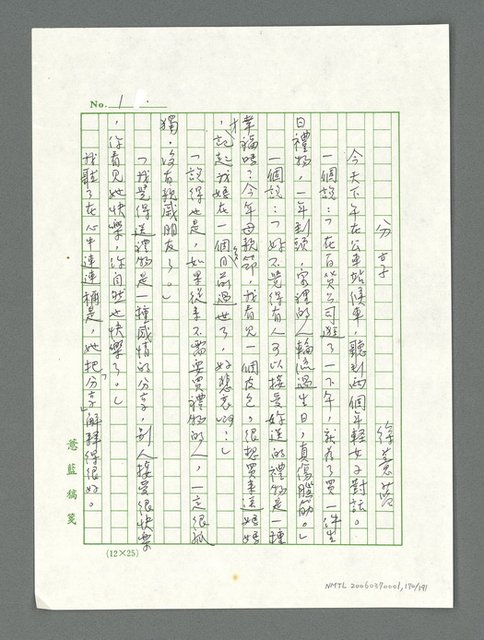 No. 1
分享
徐蕙藍
今天下午在公車站候車，聽到兩個年輕女子對話。
一個說：「在百貨公司逛了一下午，就為了買一件生
日禮物，一年到頭，家裡的人輪流過生日，真傷腦筋。」
一個說：「妳不覺得有人可以接受妳送的禮物是一種
幸福嗎？今年母親節，我看見一個皮包，很想買來送媽媽
，才想起我媽在一個月前過世了，好悲哀啊！」
「說得也是，如果從來不需要買禮物的人，一定很孤
獨，沒有親戚朋友了。」
「我覺得送禮物是一種感情的分享，別人接受很快樂
，你看見她快樂，你自然也快樂了。」
我聽了在心中連連稱是，她把「分享」解釋得很好。
蕙藍稿箋
(12×25)
NMTL 20060370001, 170/191